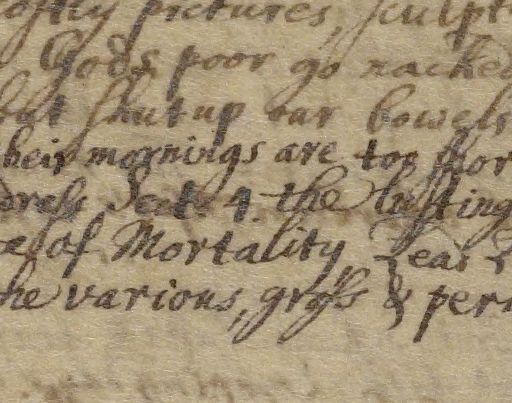 ostly pictures, sculpt
Gods poor go nacked
hat shut up our bowels
heir mornings are too shor
dress, Seat. 4. the lusting
of Mortality, Yeas
he various, gross & per